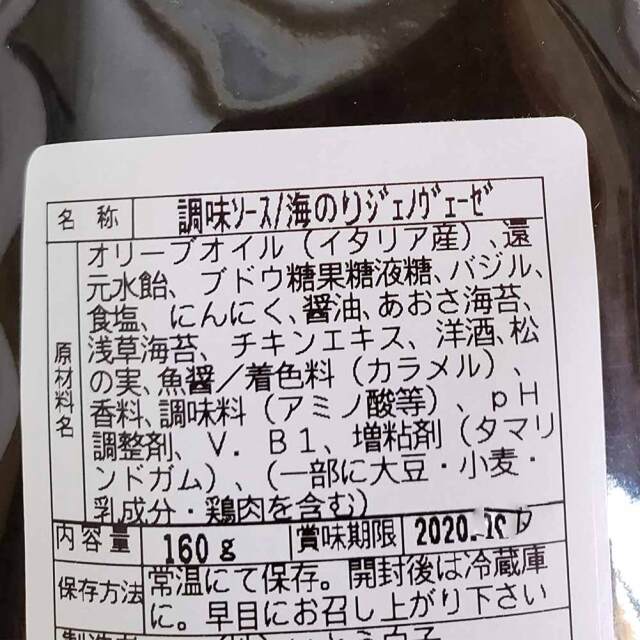 名 称 調味ソース/海のりジェノヴェーゼ
原材料名
オリーブオイル（イタリア産）、還
元水飴、ブドウ糖果糖液糖、バジル、
食塩、にんにく、醤油、あおさ海苔、
浅草海苔、チキンエキス、洋酒、松
の実、魚醤／着色料（カラメル）、
香料、調味料（アミノ酸等）、ｐＨ
調整剤、Ｖ．Ｂ１、増粘剤（タマリ
ンドガム）、（一部に大豆・小麦・
乳成分・鶏肉を含む）
内容量 160g 賞味期限 2020.
保存方法 常温にて保存。開封後は冷蔵庫
に。早目にお召し上がり下さい